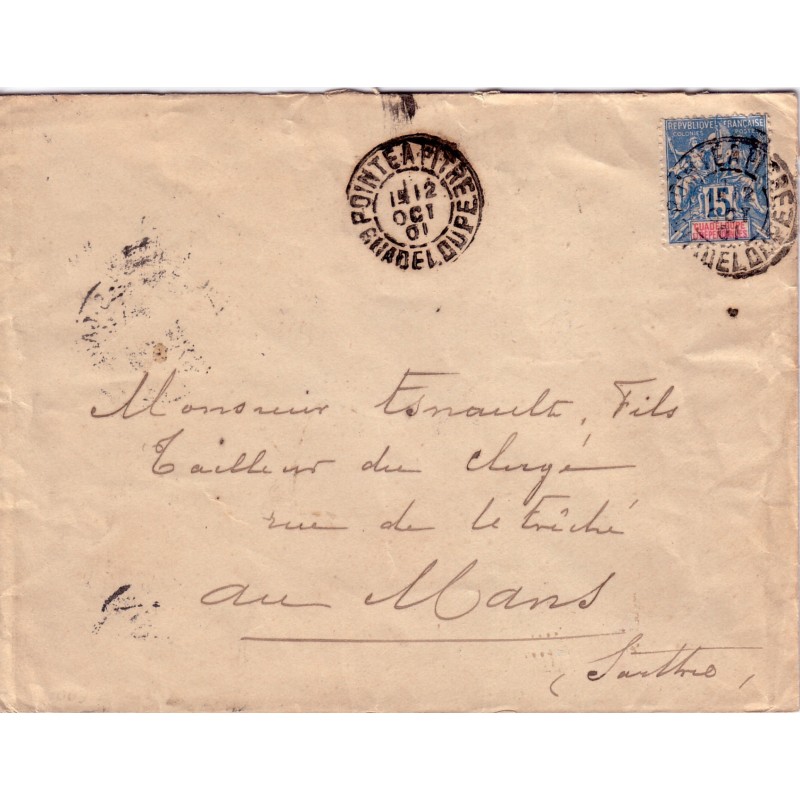 POINTE A PITRE
12
OCT
01
GUADELOUPE
REPUBLIQUE FRANÇAISE
COLONIES POSTES
15
GUADELOUPE
ET DEPENDANCES
Monsieur Esnault, Fils
Tailleur du clergé
rue de l'Evêché
au Mans
(Sarthe)